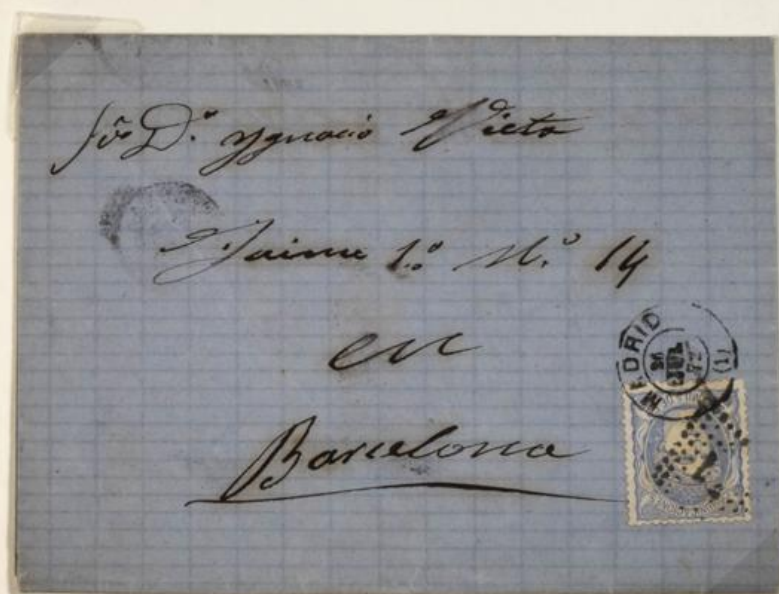 Sr. D.ⁿ Ygnacio Vieta
Jaime 1.º N.º 14
en
Barcelona
MADRID
JUL
72
(1)